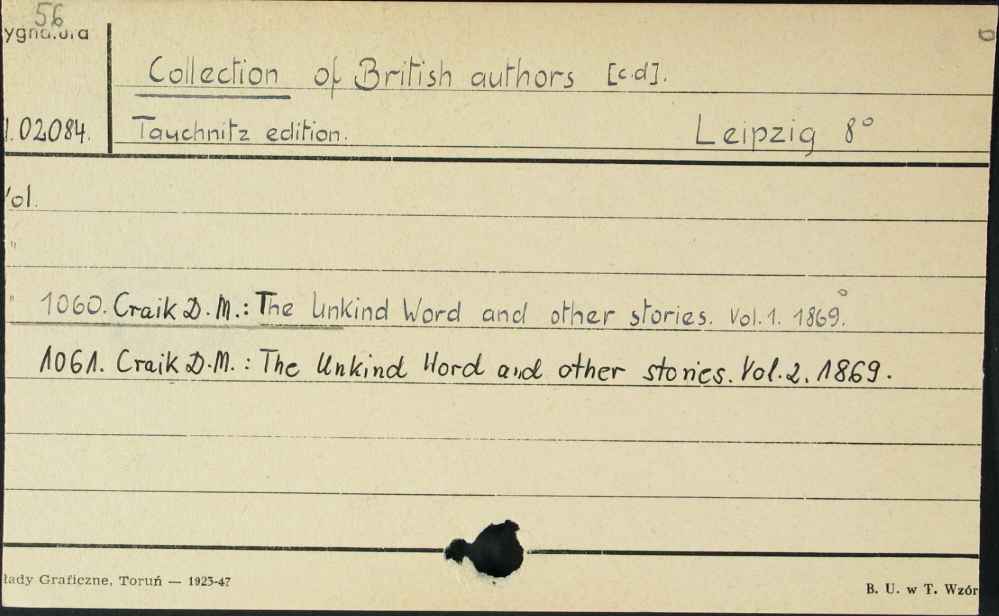 56
ygnatura
Collection of British authors [c.d].
1.02084. Tauchnitz edition. Leipzig 8°
Vol.
"
" 1060. Craik D. M.: The Unkind Word and other stories. Vol. 1. 1869.
1061. Craik D.M.: The Unkind Word and other stories. Vol. 2. 1869.
łady Graficzne, Toruń — 1923-47
B. U. w T. Wzór